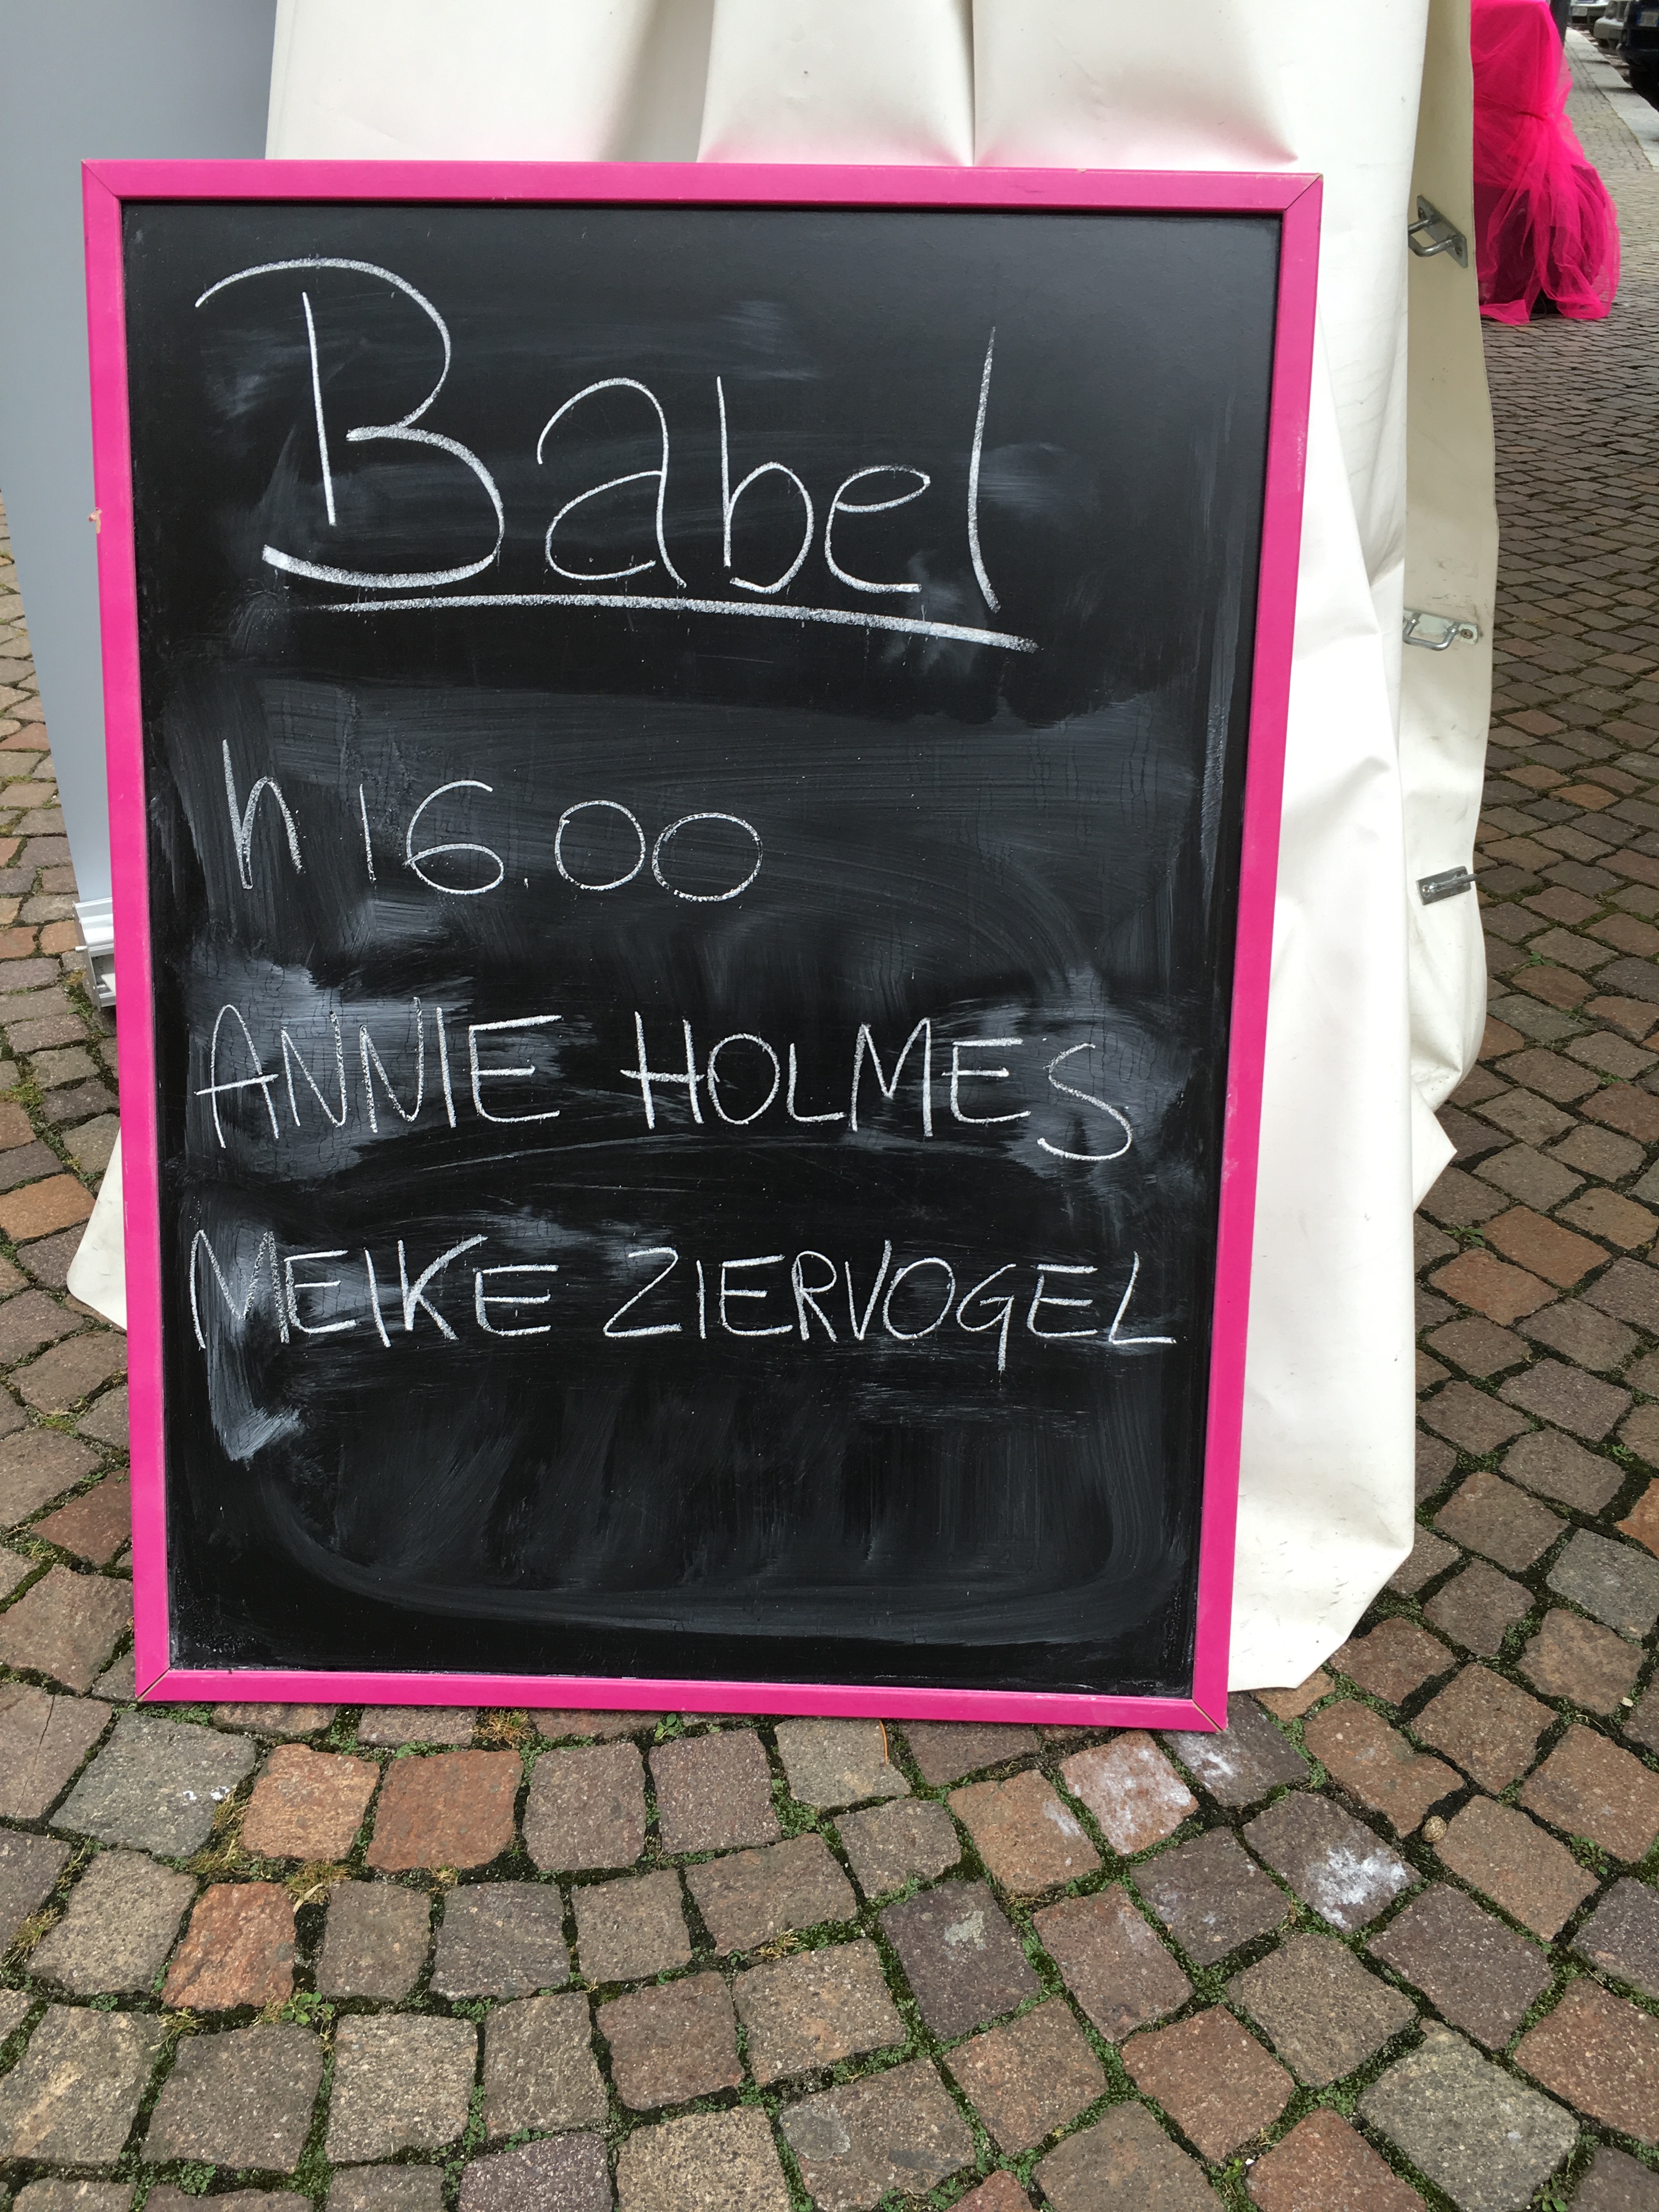 Babel
h 16.00
ANNIE HOLMES
MEIKE ZIERVOGEL